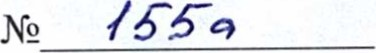 № 155а